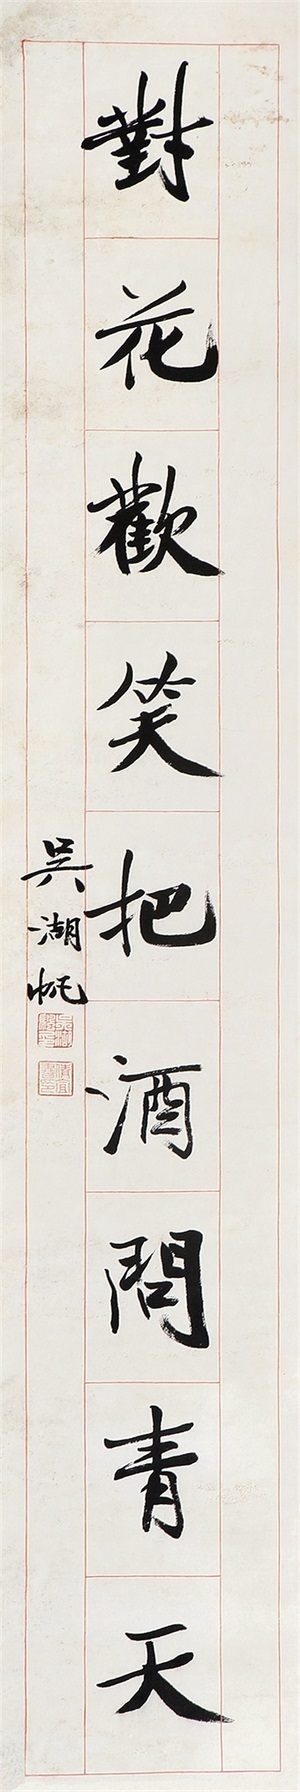 對花歡笑把酒問青天
吳湖帆